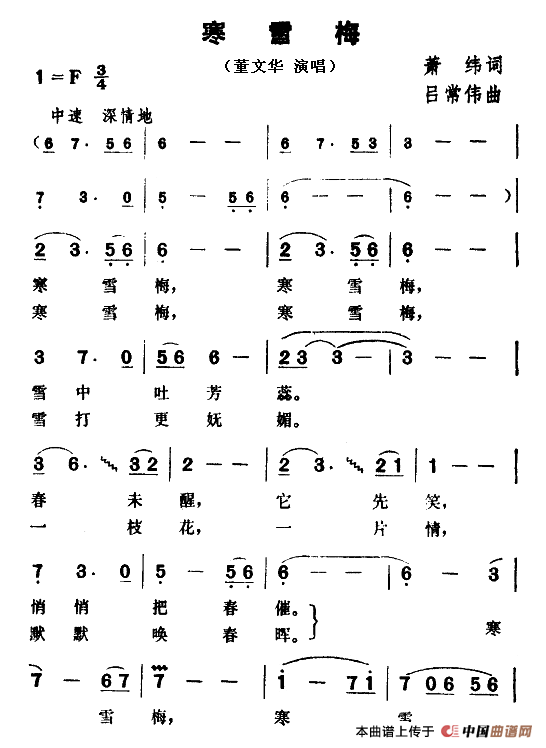 寒雪梅
（董文华 演唱）
1=F 3/4
萧纬词
吕常伟曲
中速 深情地
（6 7· 56 | 6 - - | 6 7· 53 | 3 - - |
7 3· 0 | 5 - 56 | 6 - - | 6 - - ）|
2 3· 56 | 6 - - | 2 3· 56 | 6 - - |
寒 雪梅， 寒 雪梅，
寒 雪梅， 寒 雪梅，
3 7· 0 | 56 6 - | 23 3 - | 3 - - |
雪中 吐芳蕊。
雪打 更妩媚。
3 6· 32 | 2 - - | 3 3· 21 | 1 - - |
春 未醒， 它 先笑，
一 枝花， 一 片情，
7 3· 0 | 5 - 56 | 6 - - | 6 - 3 |
悄悄 把春催。
默默 唤春晖。 寒
7 - 67 | 7 - - | i - 7i | 7 06 56 |
雪梅， 寒 雪
本曲谱上传于 中国曲谱网